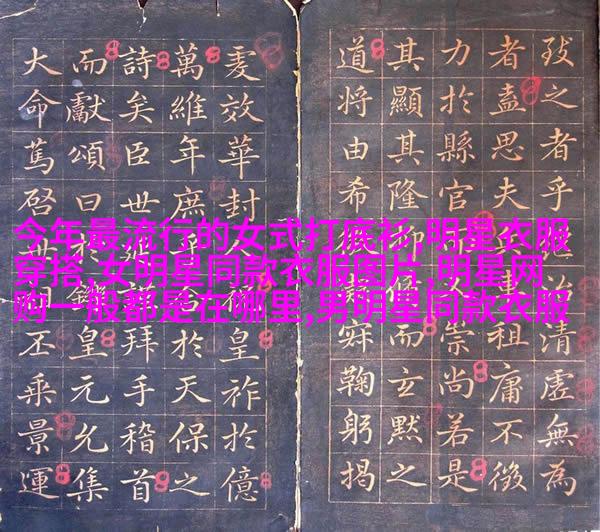 致之者乎治清虛無為
者盡思夫事租庸不徵
力於縣官崇尚若是
其顯其隆仰而玄默之
道將由希鞠躬揭
戛效華封人皇祚於億
萬維年庶於天保之
詩矣臣世拜手稽首
而獻頌曰於鑠皇元允集
大命篤啓丕乘景運
今年最流行的女式打底衫,明星衣服
穿搭,女明星同款衣服图片,明星网
购一般都是在哪里,男明星同款衣服